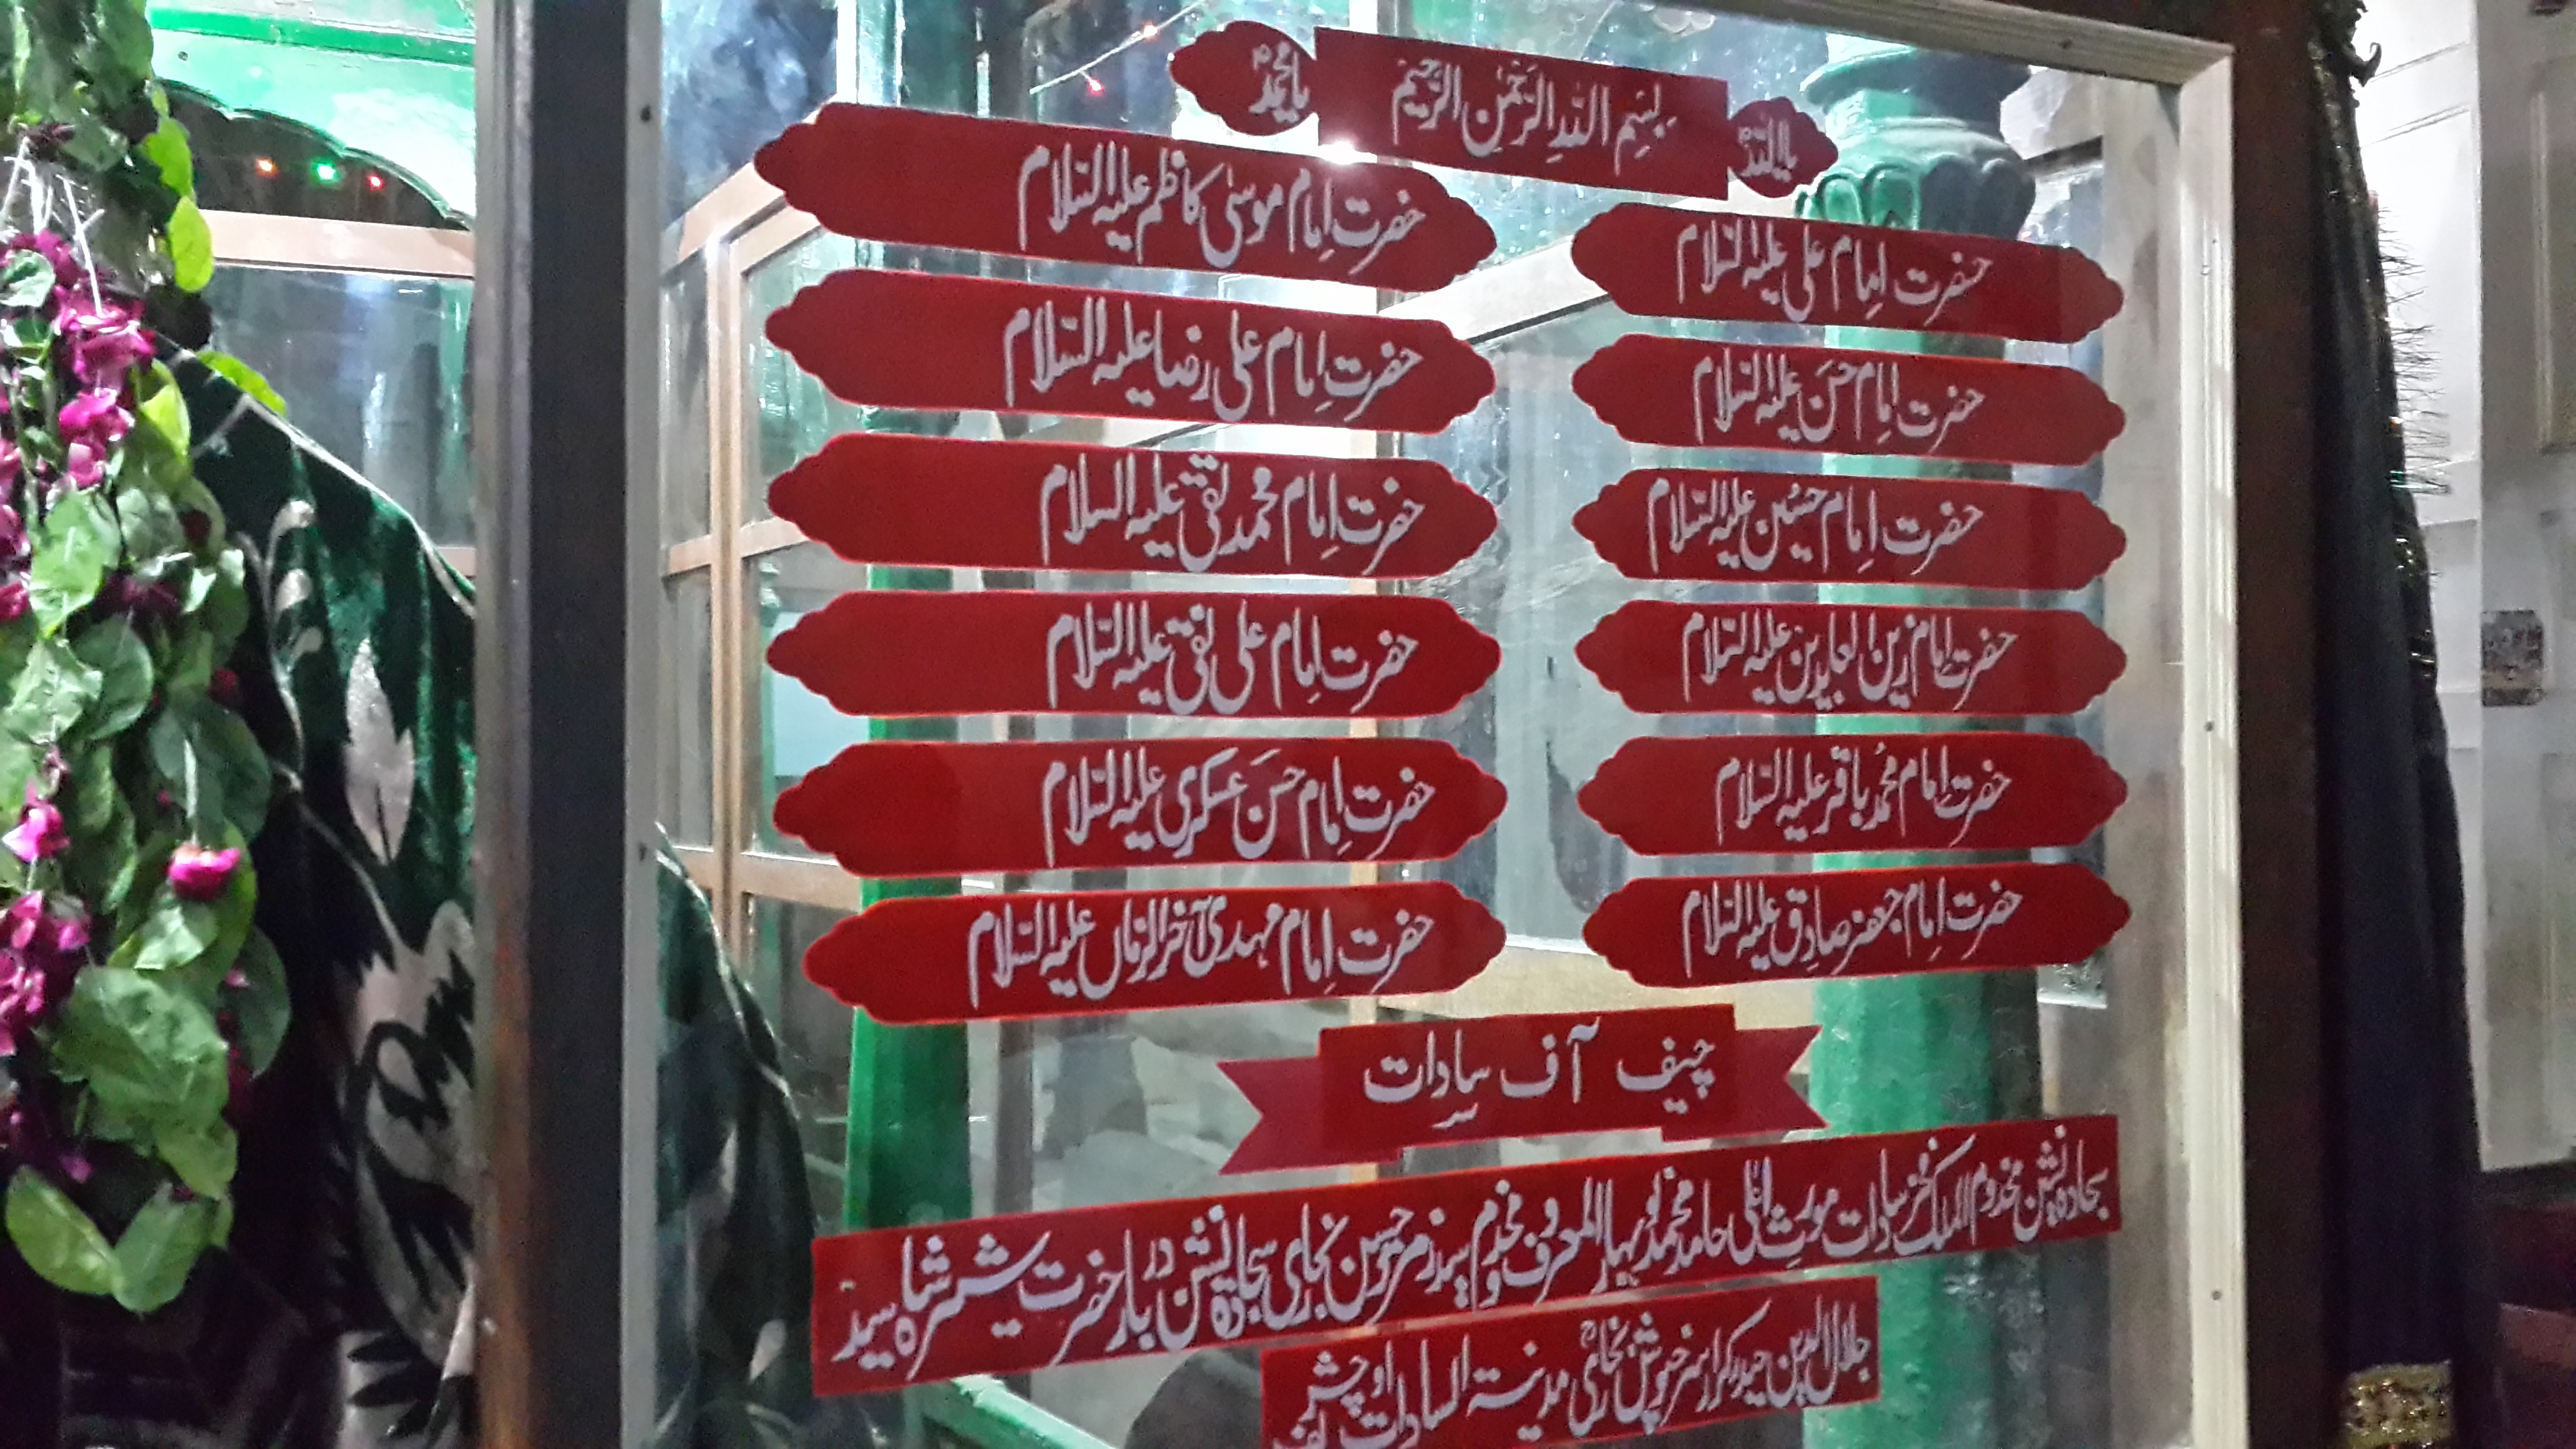 یااللہ بِسْمِ اللهِ الرَّحْمٰنِ الرَّحِیْمِ یا محمدؐ
حضرت اِمام علی علیہ السّلام
حضرت اِمام حسَن علیہ السّلام
حضرت اِمام حسُین علیہ السّلام
حضرت اِمام زین العابدین علیہ السّلام
حضرت اِمام محمُد باقر علیہ السّلام
حضرت اِمام جعفر صادِق علیہ السّلام
حضرتِ اِمام موسیٰ کاظم علیہ السّلام
حضرتِ اِمام علی رضا علیہ السّلام
حضرت اِمام محمد تقی علیہ السلام
حضرتِ اِمام علی نقی علیہ السّلام
حضرت اِمام حسَن عسکری علیہ السّلام
حضرت اِمام مہدی آخر الزماں علیہ السّلام
چیف آف سادات
سجادہ نشین مخدوم الملک فخر سادات مورث اعلی حامد محمد نو بہار المعروف و مخدوم سید زمرد حسن بخاری سجادہ نشین دربار حضرت شیر شاہ سید
جلال الدین حیدر کرار سرخپوش بخاریؒ مدینۃ السادات اوچشریف